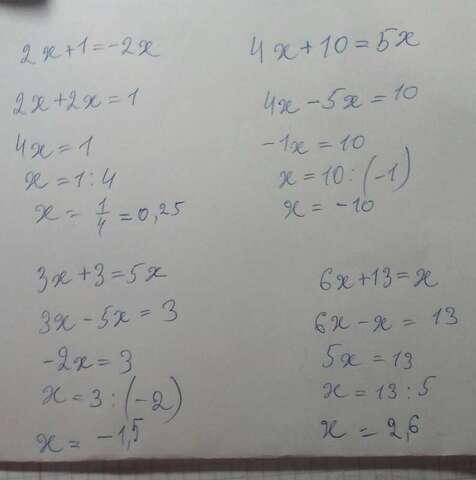 2x+1=-2x
2x+2x=1
4x=1
x=1:4
x=1/4=0,25
4x+10=5x
4x-5x=10
-1x=10
x=10:(-1)
x=-10
3x+3=5x
3x-5x=3
-2x=3
x=3:(-2)
x=-1,5
6x+13=x
6x-x=13
5x=13
x=13:5
x=2,6